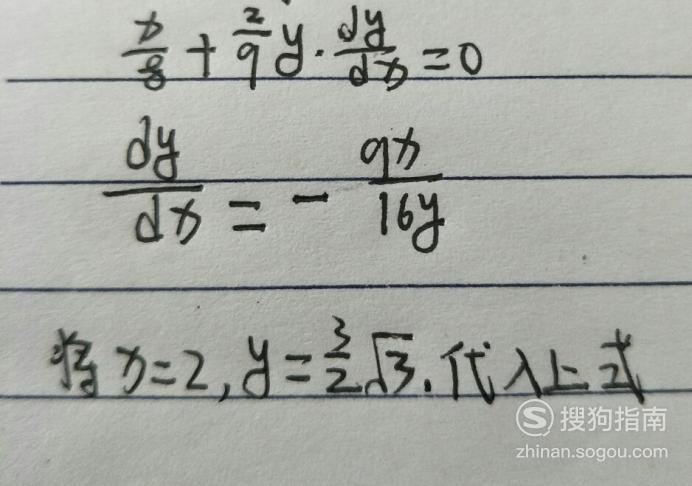 x/8 + 2/9 y · dy/dx = 0
dy/dx = - 9x/16y
将 x=2, y=3/2√3. 代入上式
S 搜狗指南
zhinan.sogou.com